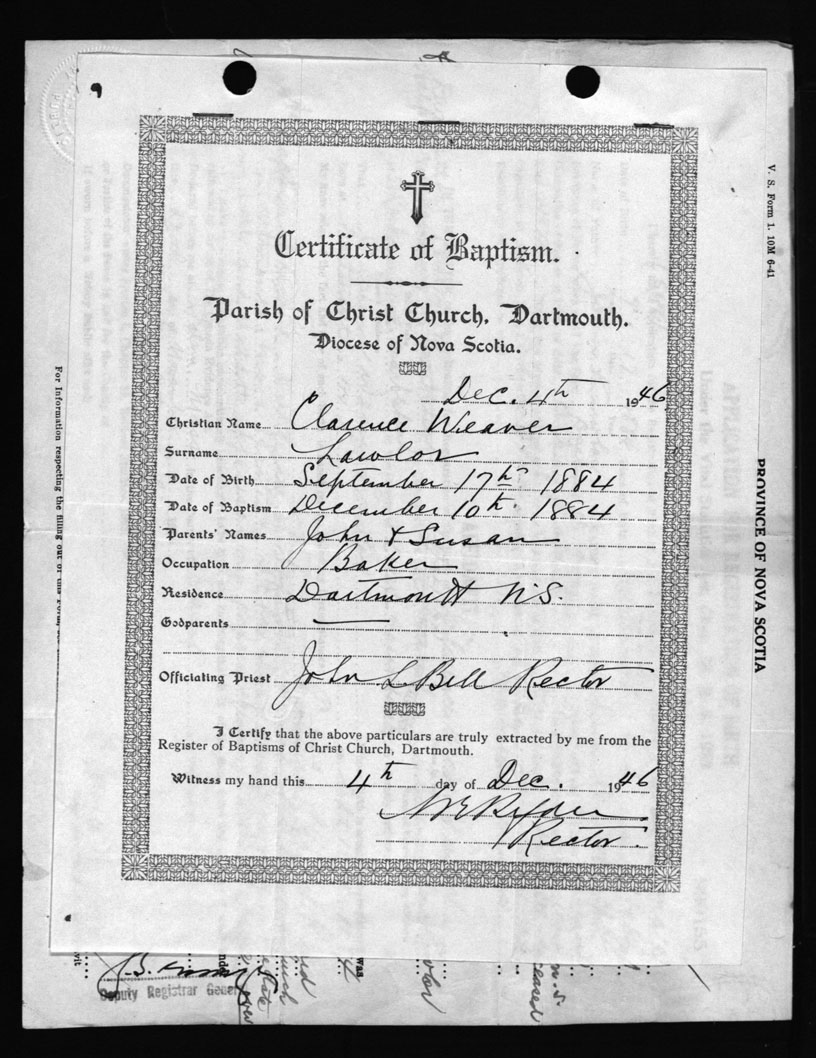 Certificate of Baptism.
Parish of Christ Church, Dartmouth.
Diocese of Nova Scotia.
Dec. 4th 1946
Christian Name Clarence Weaver
Surname Lawlor
Date of Birth September 17th 1884
Date of Baptism December 10th 1884
Parents' Names John & Susan
Occupation Baker
Residence Dartmouth N.S.
Godparents
Officiating Priest John L Bell Rector
I Certify that the above particulars are truly extracted by me from the
Register of Baptisms of Christ Church, Dartmouth.
Witness my hand this 4th day of Dec. 1946
Rector.
V. S. Form 1. 10M 6-41
PROVINCE OF NOVA SCOTIA
For Information respecting the filling out of
Deputy Registrar